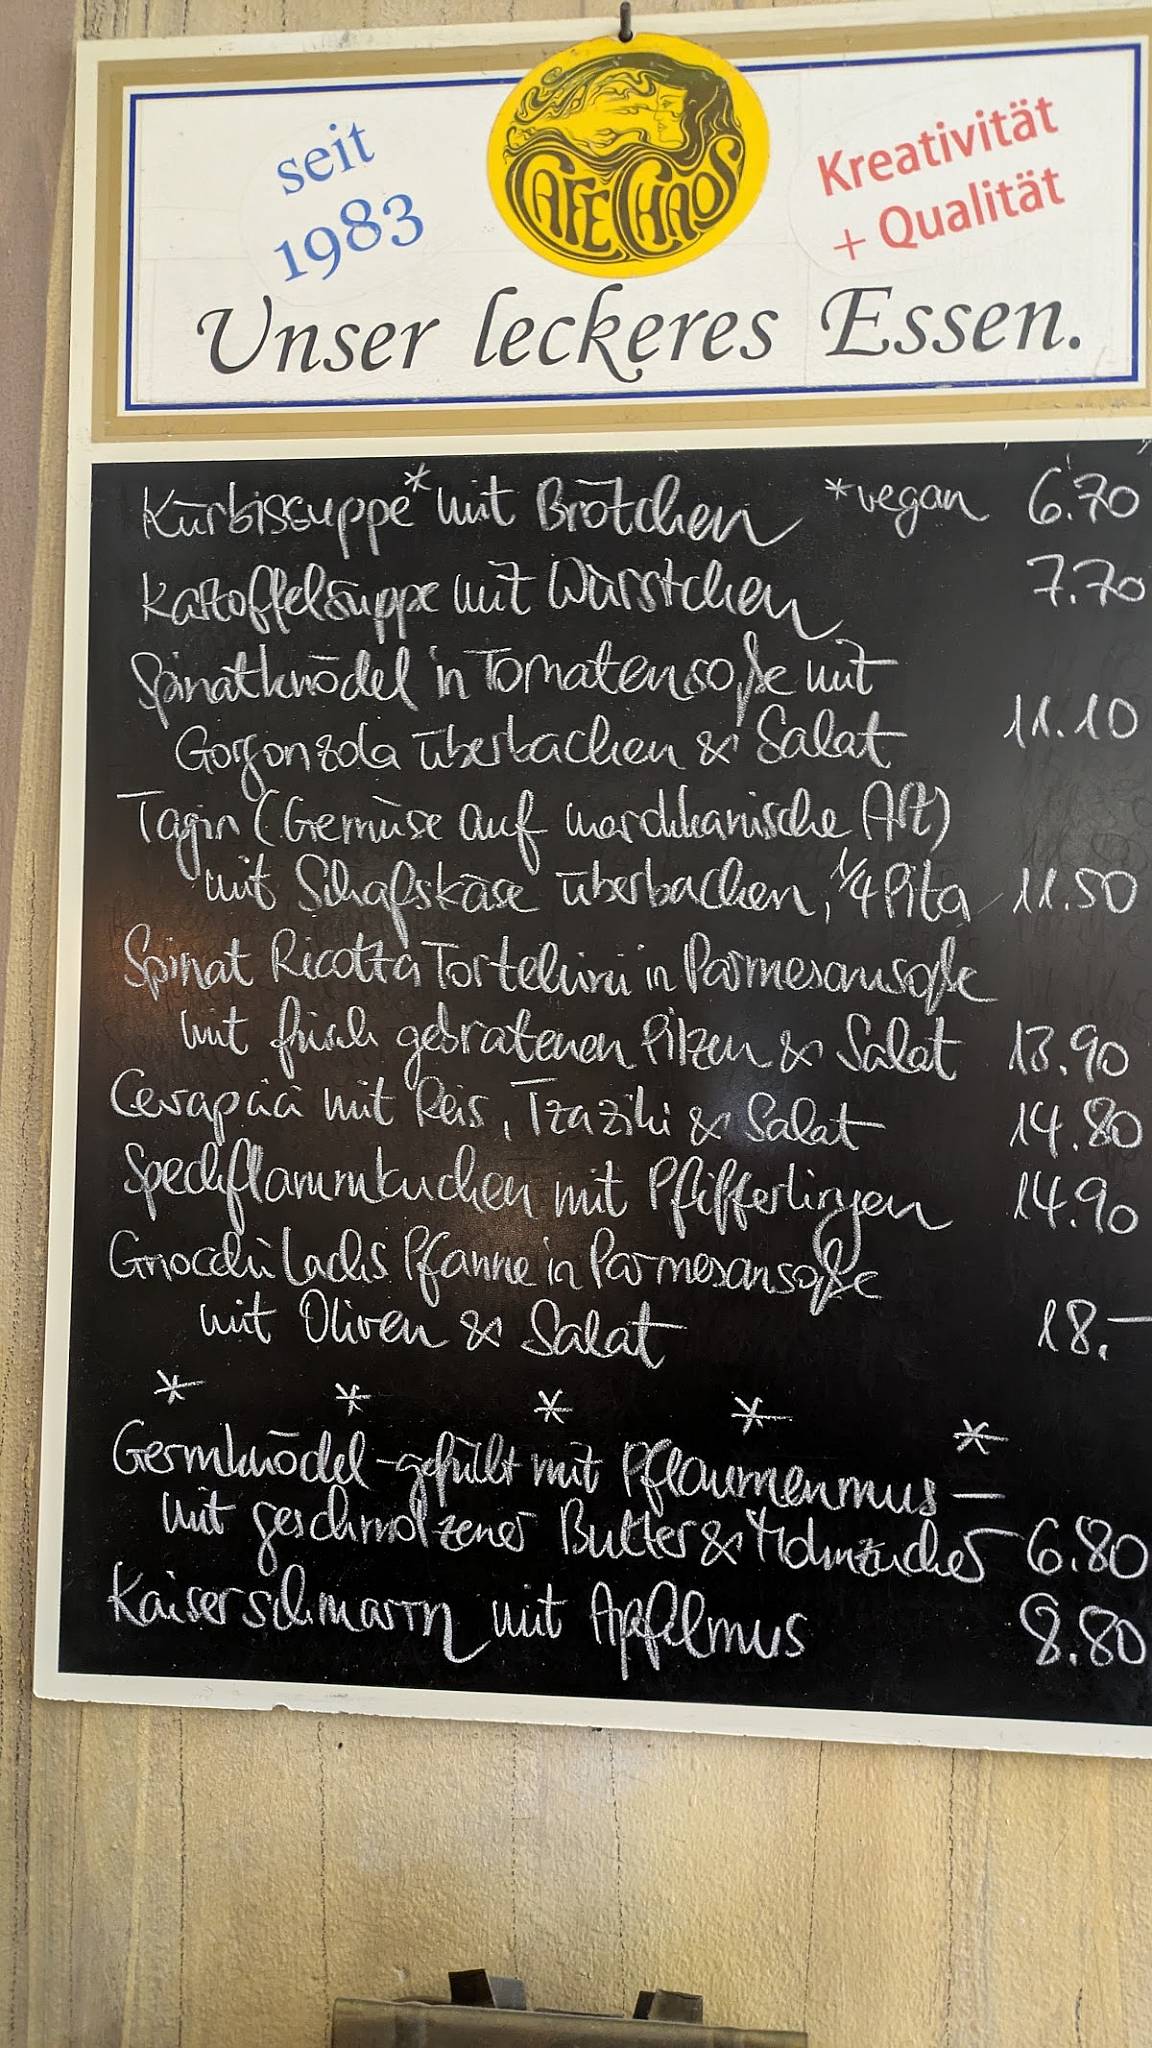 seit
1983
CAFE CHAOS
Kreativität
+ Qualität
Unser leckeres Essen.
Kürbissuppe* mit Brötchen *vegan 6.70
Kartoffelsuppe mit Würstchen 7.70
Spinatknödel in Tomatensoße mit
Gorgonzola überbacken & Salat 11.10
Tagin (Gemüse auf marokkanische Art)
mit Schafskäse überbacken, 1/4 Pita 11.50
Spinat Ricotta Tortellini in Parmesansoße
mit frisch gebratenen Pilzen & Salat 13.90
Cevapcici mit Reis, Tzaziki & Salat 14.80
Speckflammkuchen mit Pfifferlingen 14.90
Gnocchi Lachs Pfanne in Parmesansoße
mit Oliven & Salat 18.-
* * * * *
Germknödel - gefüllt mit Pflaumenmus -
mit geschmolzener Butter & Mohnzucker 6.80
Kaiserschmarrn mit Apfelmus 8.80